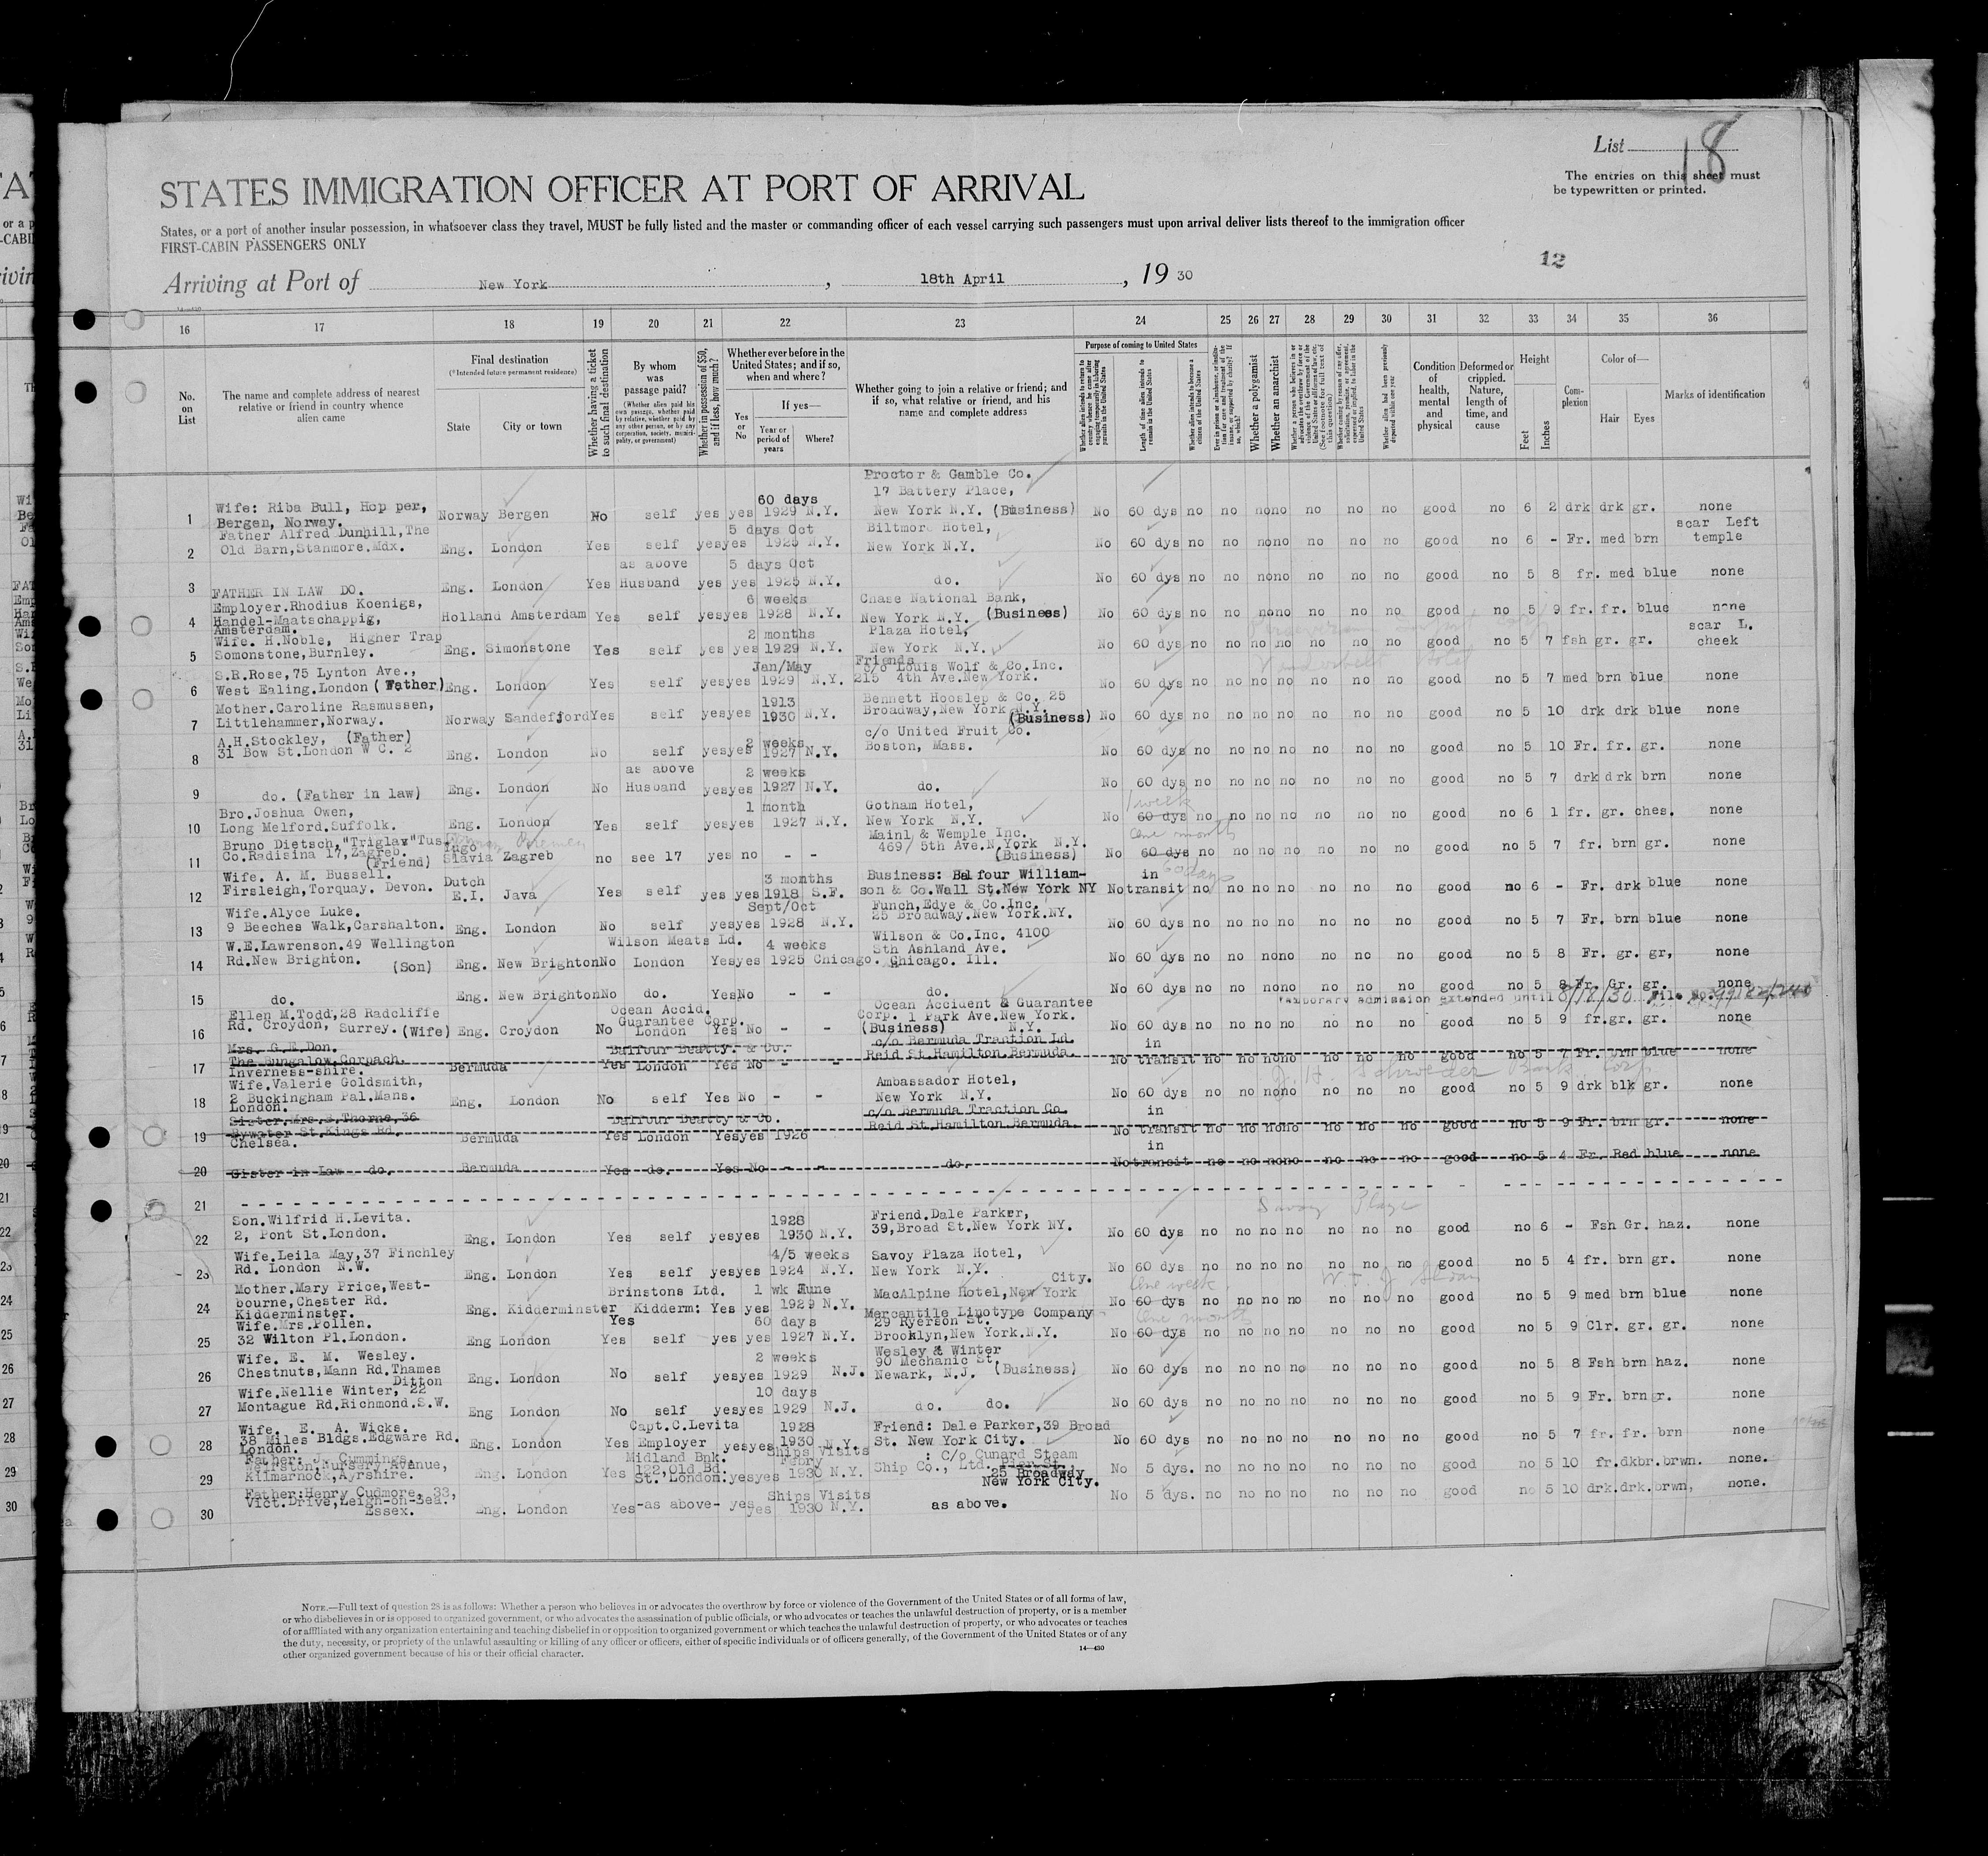 List 18
The entries on this sheet must
be typewritten or printed.
STATES IMMIGRATION OFFICER AT PORT OF ARRIVAL
States, or a port of another insular possession, in whatsoever class they travel, MUST be fully listed and the master or commanding officer of each vessel carrying such passengers must upon arrival deliver lists thereof to the immigration officer
FIRST-CABIN PASSENGERS ONLY
12
Arriving at Port of New York, 18th April, 19 30
16 17 18 19 20 21 22 23 24 25 26 27 28 29 30 31 32 33 34 35 36
No. on List
The name and complete address of nearest relative or friend in country whence alien came
Final destination
(*Intended future permanent residence)
State City or town
Whether having a ticket to such final destination
By whom was passage paid?
(Whether alien paid his own passage, whether paid by relative, whether paid by any other person, or by any corporation, society, municipality, or government)
Whether in possession of $50, and if less, how much?
Whether ever before in the United States; and if so, when and where?
Yes or No
If yes—
Year or period of years Where?
Whether going to join a relative or friend; and if so, what relative or friend, and his name and complete address
Purpose of coming to United States
Length of time alien intends to remain in the United States
Whether a polygamist
Whether an anarchist
Condition of health, mental and physical
Deformed or crippled. Nature, length of time, and cause
Height
Feet Inches
Complexion
Color of—
Hair Eyes
Marks of identification
Proctor & Gamble Co.
17 Battery Place,
1 Wife: Riba Bull, Hop per, Bergen, Norway. Norway Bergen No self yes yes 60 days 1929 N.Y. New York N.Y. (Business) No 60 dys no no no no no no no good no 6 2 drk drk gr. none
2 Father Alfred Dunhill, The Old Barn, Stanmore. Mdx. Eng. London Yes self yes yes 5 days Oct 1925 N.Y. Biltmore Hotel, New York N.Y. No 60 dys no no no no no no no good no 6 - Fr. med brn scar Left temple
3 FATHER IN LAW DO. Eng. London Yes as above Husband yes yes 5 days Oct 1925 N.Y. do. No 60 dys no no no no no no no good no 5 8 fr. med blue none
4 Employer. Rhodius Koenigs, Handel-Maatschappig, Amsterdam. Holland Amsterdam Yes self yes yes 6 weeks 1928 N.Y. Chase National Bank, New York N.Y. (Business) No 60 dys no no no no no no no good no 5 9 fr. fr. blue none
5 Wife. H. Noble, Higher Trap Somonstone, Burnley. Eng. Simonstone Yes self yes yes 2 months 1929 N.Y. Plaza Hotel, New York N.Y. No 60 dys no no no no no no no good no 5 7 fsh gr. gr. scar L. cheek
Vanderbilt Hotel
6 S.R. Rose, 75 Lynton Ave., West Ealing. London (Father) Eng. London Yes self yes yes Jan/May 1929 N.Y. Friends c/o Louis Wolf & Co. Inc. 215 4th Ave. New York. No 60 dys no no no no no no no good no 5 7 med brn blue none
7 Mother. Caroline Rasmussen, Littlehammer, Norway. Norway Sandefford Yes self yes yes 1913 1930 N.Y. Bennett Hooslep & Co. 25 Broadway, New York N.Y. (Business) No 60 dys no no no no no no no good no 5 10 drk drk blue none
8 A.H. Stockley, (Father) 31 Bow St. London W C. 2 Eng. London No self yes yes 2 weeks 1927 N.Y. c/o United Fruit Co. Boston, Mass. No 60 dys no no no no no no no good no 5 10 Fr. fr. gr. none
9 do. (Father in law) Eng. London No as above Husband yes yes 2 weeks 1927 N.Y. do. No 60 dys no no no no no no no good no 5 7 drk drk brn none
10 Bro. Joshua Owen, Long Melford. Suffolk. Eng. London Yes self yes yes 1 month 1927 N.Y. Gotham Hotel, New York N.Y. No 1 week 60 dys no no no no no no no good no 6 1 fr. gr. ches. none
11 Bruno Dietsch, "Triglav" Tus. Co. Radisina 17, Zagreb. (Friend) Yugo Slavia Zagreb no see 17 yes no - - Mainl & Wemple Inc. 469/ 5th Ave. N.York N.Y. (Business) No One month 60 dys no no no no no no no good no 5 7 fr. brn gr. none
12 Wife. A. M. Bussell. Firsleigh, Torquay. Devon. Dutch E.I. Java Yes self yes yes 3 months 1918 S.F. Business: Balfour Williamson & Co. Wall St. New York NY No in transit 60 days no no no no no no no good no 6 - Fr. drk blue none
13 Wife. Alyce Luke. 9 Beeches Walk, Carshalton. Eng. London No self yes yes Sept/Oct 1928 N.Y. Funch, Edye & Co. Inc. 25 Broadway. New York. NY. No 60 dys no no no no no no no good no 5 7 Fr. brn blue none
14 W.E. Lawrenson. 49 Wellington Rd. New Brighton. (Son) Eng. New Brighton No Wilson Meats Ld. London Yes yes 4 weeks 1925 Chicago. Wilson & Co. Inc. 4100 Sth Ashland Ave. Chicago. Ill. No 60 dys no no no no no no no good no 5 8 Fr. gr. gr, none
15 do. Eng. New Brighton No do. Yes No - - do. No 60 dys no no no no no no no good no 5 8 Fr. Gr. gr. none
temporary admission extended until 8/18/30 File No.
16 Ellen M. Todd, 28 Radcliffe Rd. Croydon, Surrey. (Wife) Eng. Croydon No Ocean Accid. Guarantee Corp. London Yes No - - Ocean Accident & Guarantee Corp. 1 Park Ave. New York. (Business) N.Y. No 60 dys no no no no no no no good no 5 9 fr. gr. gr. none
17 Mrs. G.E. Don. The Bungalow, Corpach. Inverness-shire. Bermuda Yes Balfour Beatty. & Co. London Yes No - - c/o Bermuda Traction Ld. Reid St. Hamilton. Bermuda. No in transit no no no no no no no good no 5 7 Fr. brn blue none
J. H. Schroeder Bank. Corp
18 Wife. Valerie Goldsmith, 2 Buckingham Pal. Mans. London. Eng. London No self Yes No - - Ambassador Hotel, New York N.Y. No 60 dys no no no no no no no good no 5 9 drk blk gr. none
19 Sister. Mrs. E. Thorne, 36 Bywater St. Kings Rd. Chelsea. Bermuda Yes Balfour Beatty & Co. London Yes yes 1926 c/o Bermuda Traction Co. Reid St. Hamilton. Bermuda. No in transit no no no no no no no good no 5 9 Fr. brn gr. none
20 Sister in Law do. Bermuda Yes do. Yes No - - do. No in transit no no no no no no no good no 5 4 Fr. Red blue none
21
Savoy Plaza
22 Son. Wilfrid H. Levita. 2, Pont St. London. Eng. London Yes self yes yes 1928 1930 N.Y. Friend. Dale Parker, 39, Broad St. New York NY. No 60 dys no no no no no no no good no 6 - Fsh Gr. haz. none
23 Wife. Leila May, 37 Finchley Rd. London N.W. Eng. London Yes self yes yes 4/5 weeks 1924 N.Y. Savoy Plaza Hotel, New York N.Y. No 60 dys no no no no no no no good no 5 4 fr. brn gr. none
24 Mother. Mary Price, Westbourne, Chester Rd. Kidderminster. Eng. Kidderminster Yes Brinstons Ltd. Kidderm: Yes yes 1 wk June 1929 N.Y. MacAlpine Hotel, New York City. No One week 60 dys no no no no no no no good no 5 9 med brn blue none
25 Wife. Mrs. Pollen. 32 Wilton Pl. London. Eng London Yes self yes yes 60 days 1927 N.Y. Mercantile Linotype Company 29 Ryerson St. Brooklyn, New York. N.Y. No One month 60 dys no no no no no no no good no 5 9 Clr. gr. gr. none
26 Wife. E. M. Wesley. Chestnuts, Mann Rd. Thames Ditton Eng. London No self yes yes 2 weeks 1929 N.J. Wesley & Winter 90 Mechanic St. Newark, N.J. (Business) No 60 dys no no no no no no no good no 5 8 Fsh brn haz. none
27 Wife. Nellie Winter, 22 Montague Rd. Richmond. S.W. Eng London No self yes yes 10 days 1929 N.J. do. do. No 60 dys no no no no no no no good no 5 9 Fr. brn gr. none
28 Wife. E. A. Wicks. 38 Miles Bldgs. Edgware Rd. London. Eng. London Yes Capt. C. Levita Employer yes yes 1928 1930 N.Y. Friend: Dale Parker, 39 Broad St. New York City. No 60 dys no no no no no no no good no 5 7 fr. fr. brn none
29 Father: J. Cummings, Nursery Avenue, Kilmarnock, Ayrshire. Eng. London Yes Midland Bnk. 122, Old Bd. St. London. yes yes Ships Visits Febry 1930 N.Y. : C/o Cunard Steam Ship Co., Ltd. 25 Broadway New York City. No 5 dys. no no no no no no no good no 5 10 fr. dkbr. brwn. none.
30 Father: Henry Cudmore, 33, Vict. Drive, Leigh-on-Sea. Essex. Eng. London Yes -as above- yes yes Ships Visits 1930 N.Y. as above. No 5 dys. no no no no no no no good no 5 10 drk. drk. brwn, none.
NOTE.—Full text of question 28 is as follows: Whether a person who believes in or advocates the overthrow by force or violence of the Government of the United States or of all forms of law,
or who disbelieves in or is opposed to organized government, or who advocates the assassination of public officials, or who advocates or teaches the unlawful destruction of property, or is a member
of or affiliated with any organization entertaining and teaching disbelief in or opposition to organized government or which teaches the unlawful destruction of property, or who advocates or teaches
the duty, necessity, or propriety of the unlawful assaulting or killing of any officer or officers, either of specific individuals or of officers generally, of the Government of the United States or of any
other organized government because of his or their official character.
14—430